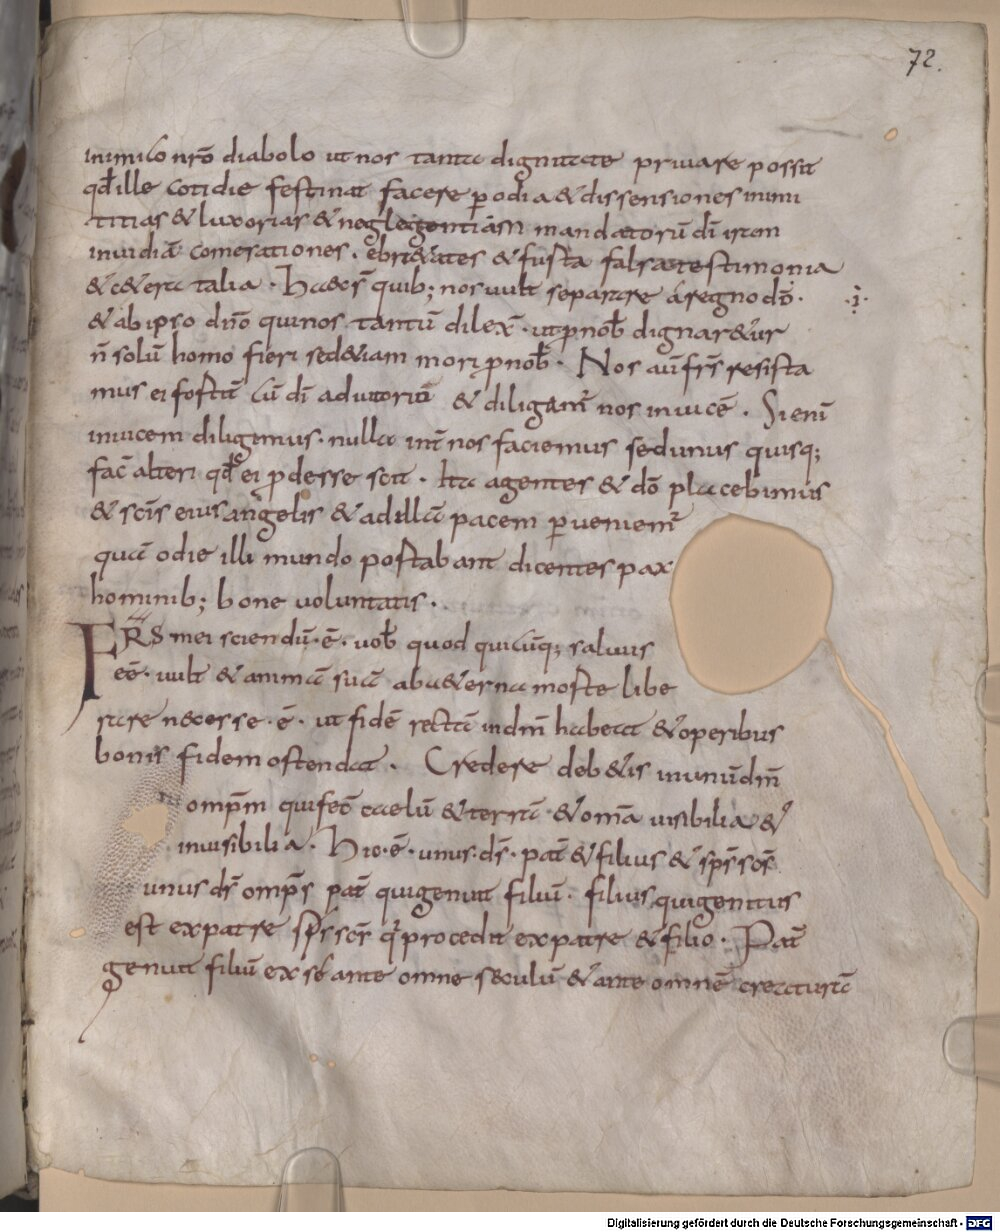 72.
inimico nr̄o diabolo ut nos tanta dignitate priuare possit
qđ ille cotidie festinat facere ꝑ odia & dissensiones inimi
titias & luxorias & neglegentiam mandatorū dī iram
inuidiā comesationes · ebri&ates & furta falsa testimonia
& c&era talia · quib; nos uult separare á regno dō ·
·i·
& ab ipso dn̄o qui nos tantū dilex̄ · ut ꝓ nob̄ dignar&ur
n̄ solū homo fieri sed &iam mori ꝓ nob̄ · Nos aūt fr̄s resista
mus ei fortit̄ cū dī adiutoriū & diligam᷒ nos inuicē · Si enī
inuicem diligimus · nulla int̄ nos faciemus sed unus quisq;
fac̄ alteri qđ ei ꝓdesse scit · Ita agentes & dō placebimus
& sc̄is eius angelis & ad illā pacem ꝑueniem᷒
quā odie illi mundo portabant dicentes pax
hominib; bone voluntatis ·
FR̄S mei sciendū · ē · uob̄ quod quicūq; saluus
eē · uult & animā suā ab a&erna morte libe
rare necesse · ē · ut fidē rectā in dn̄m habeat & operibus
bonis fidem ostendat · Credere deb&is in unū dn̄m
omp̄m qui fec̄ caelū & terrā · & omīa uisibilia &
inuisibilia · Hic · ē · unus · ds̄ · pat̄ & filius & sp̄s sc̄s
unus ds̄ omp̄s pat̄ qui genuit filiū · filius qui genitus
est ex patre sp̄s sc̄s q᷒ procedit ex patre & filio · Pat̄
genuit filiū ex sé ante omne seculū & ante omnē creaturā
Digitalisierung gefördert durch die Deutsche Forschungsgemeinschaft - DFG